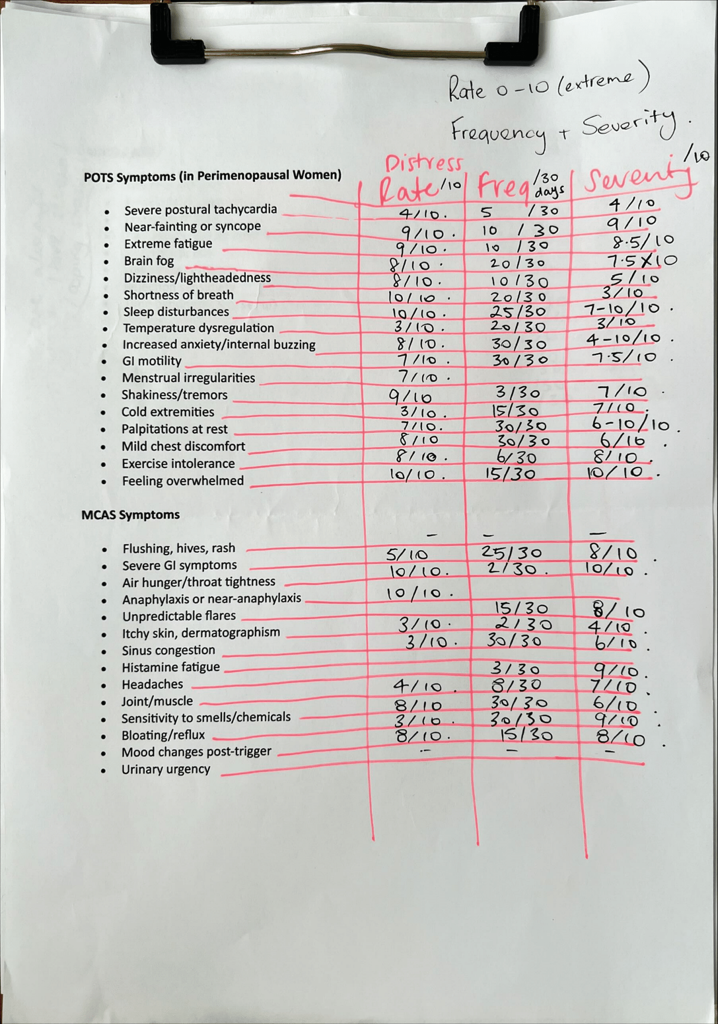 Rate 0-10 (extreme)
Frequency + Severity.
POTS Symptoms (in Perimenopausal Women) Distress Rate/10 Freq/30 days Severity/10
• Severe postural tachycardia 4/10. 5 /30 4/10
• Near-fainting or syncope 9/10. 10 / 30 9/10
• Extreme fatigue 9/10. 10 /30 8.5/10
• Brain fog 8/10. 20/30 7.5 x10
• Dizziness/lightheadedness 8/10. 10/30 5/10
• Shortness of breath 10/10. 20/30 3/10
• Sleep disturbances 10/10. 25/30 7-10/10.
• Temperature dysregulation 3/10. 20/30 3/10
• Increased anxiety/internal buzzing 8/10. 30/30 4-10/10.
• GI motility 7/10. 30/30 7.5/10.
• Menstrual irregularities 7/10.
• Shakiness/tremors 9/10 3/30 7/10.
• Cold extremities 3/10. 15/30 7/10.
• Palpitations at rest 7/10. 30/30 6-10/10.
• Mild chest discomfort 8/10 30/30 6/10
• Exercise intolerance 8/10. 6/30 8/10.
• Feeling overwhelmed 10/10. 15/30 10/10.
MCAS Symptoms
• Flushing, hives, rash – – –
• Severe GI symptoms 5/10 25/30 8/10.
• Air hunger/throat tightness 10/10. 2/30. 10/10.
• Anaphylaxis or near-anaphylaxis 10/10.
• Unpredictable flares 15/30 8/10
• Itchy skin, dermatographism 3/10. 2/30 4/10.
• Sinus congestion 3/10. 30/30 6/10.
• Histamine fatigue 3/30 9/10.
• Headaches 4/10. 8/30 7/10.
• Joint/muscle 8/10 30/30 6/10
• Sensitivity to smells/chemicals 3/10. 30/30 9/10.
• Bloating/reflux 8/10. 15/30 8/10.
• Mood changes post-trigger – – –
• Urinary urgency